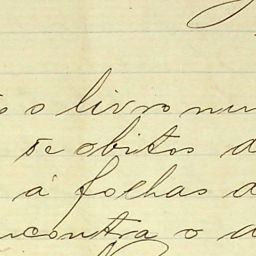 o livro nu
de obitos d
á folhas d
ncontra o a